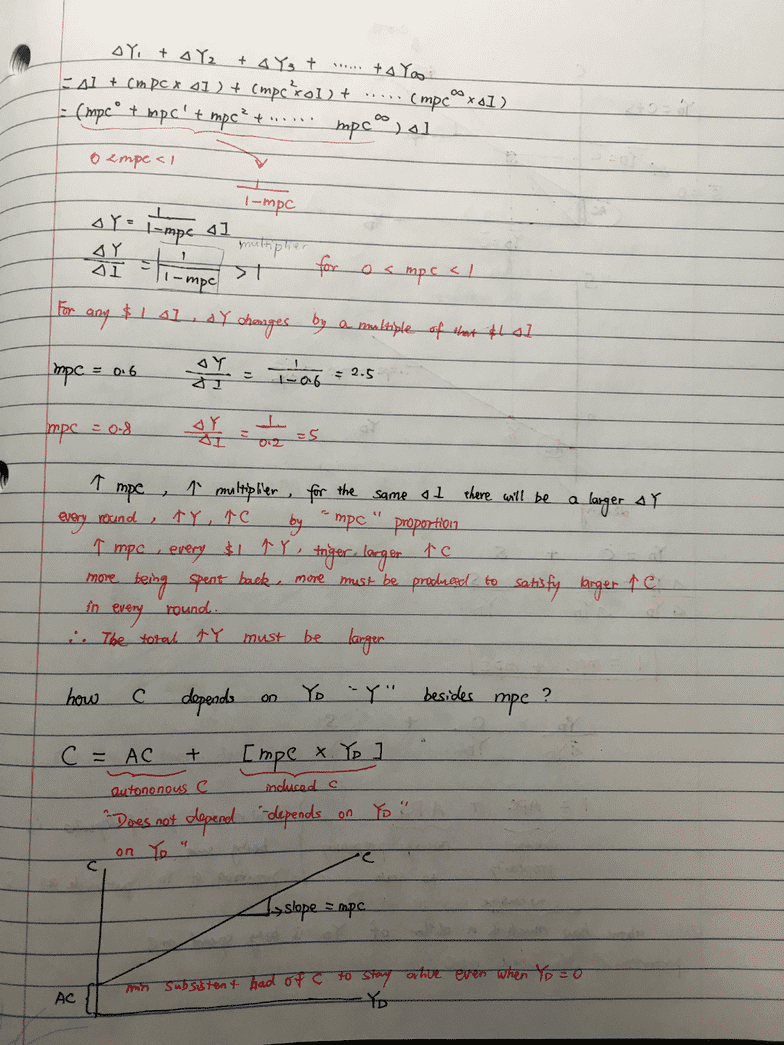 ΔY₁ + ΔY₂ + ΔY₃ + ...... + ΔY∞
= ΔI + (mpc x ΔI) + (mpc² x ΔI) + ..... (mpc^∞ x ΔI)
= (mpc⁰ + mpc¹ + mpc² + ...... mpc^∞) ΔI
0 < mpc < 1
1/(1-mpc)
ΔY = 1/(1-mpc) ΔI
multiplier
ΔY/ΔI = 1/(1-mpc) > 1 for 0 < mpc < 1
For any $1 ΔI, ΔY changes by a multiple of that $1 ΔI
mpc = 0.6 ΔY/ΔI = 1/(1-0.6) = 2.5
mpc = 0.8 ΔY/ΔI = 1/0.2 = 5
↑ mpc, ↑ multiplier, for the same ΔI there will be a larger ΔY
every round, ↑Y, ↑C by "mpc" proportion
↑ mpc, every $1 ↑Y, triger larger ↑C
more being spent back, more must be produced to satisfy larger ↑C
in every round.
∴ The total ↑Y must be larger
how C depends on Y_D "Y" besides mpc?
C = AC + [mpc x Y_D]
autononous C induced C
"Does not depend "depends on Y_D"
on Y_D"
C C
→ slope = mpc
min subsistent of C to stay alive even when Y_D = 0
AC Y_D